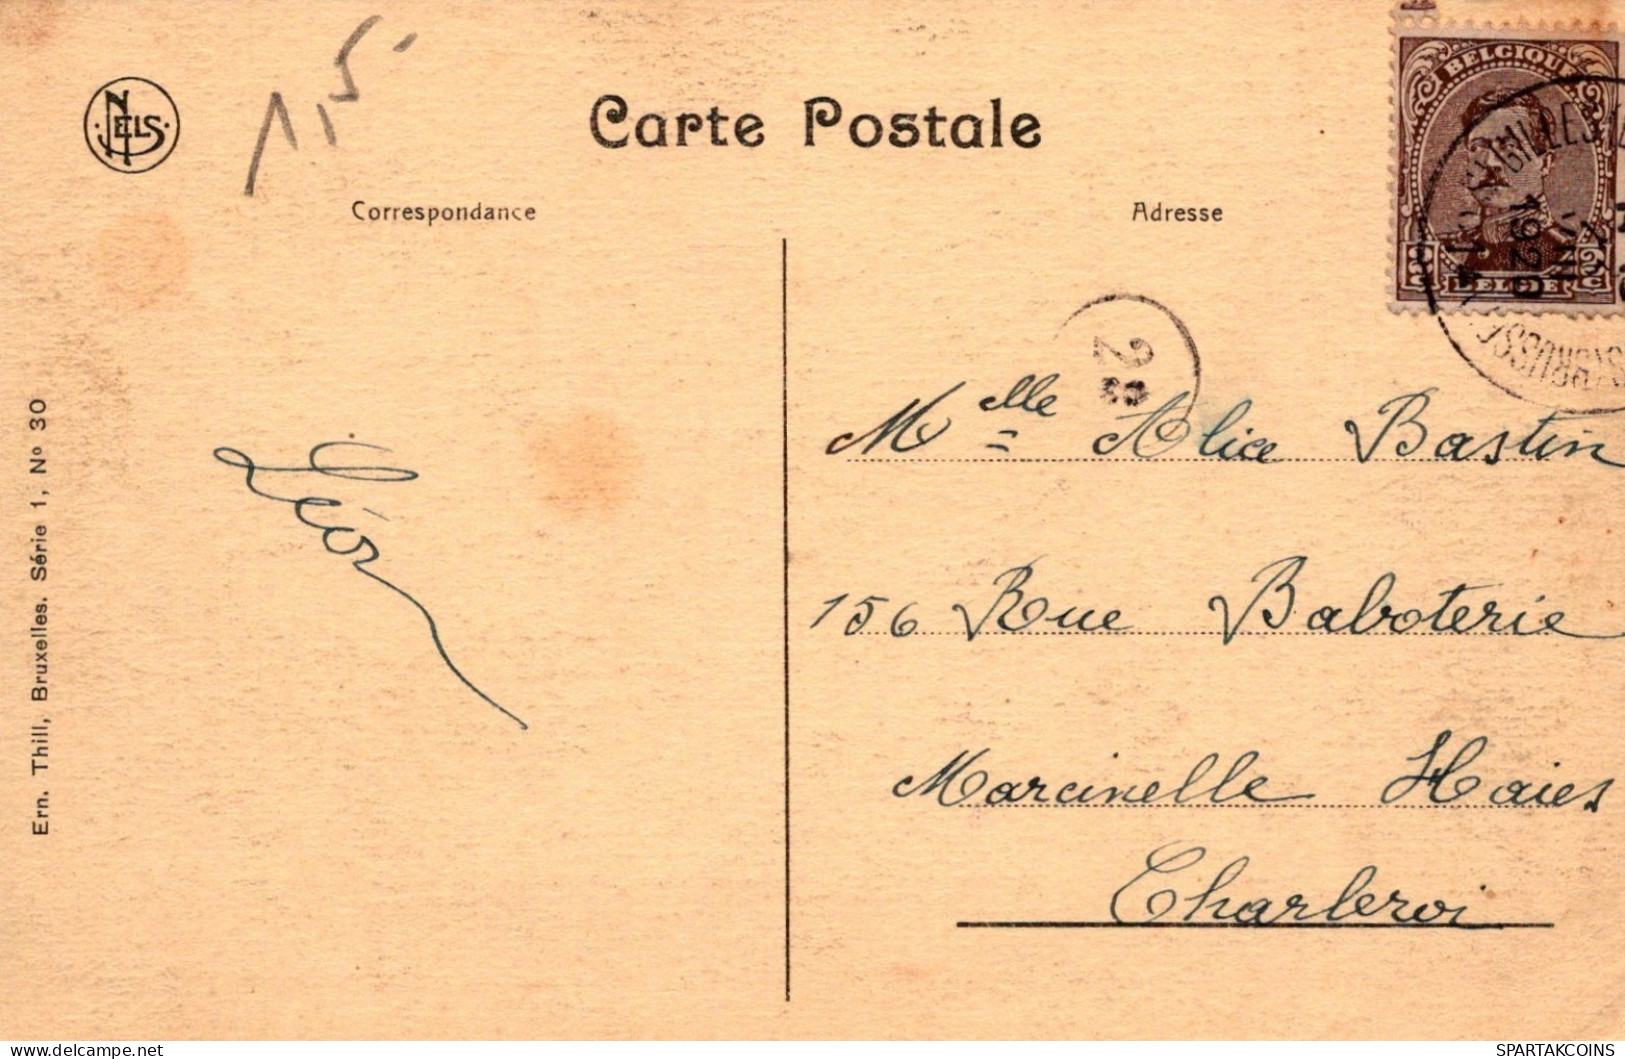 NELS
1,5
Carte Postale
Correspondance
Adresse
BELGIQUE
BELGIE
1920
2
Mlle Alice Bastin
156 Rue Baboterie
Marcinelle Haies
Charleroi
Léon
Ern. Thill, Bruxelles. Série 1, Nº 30
SPARTAKCOINS